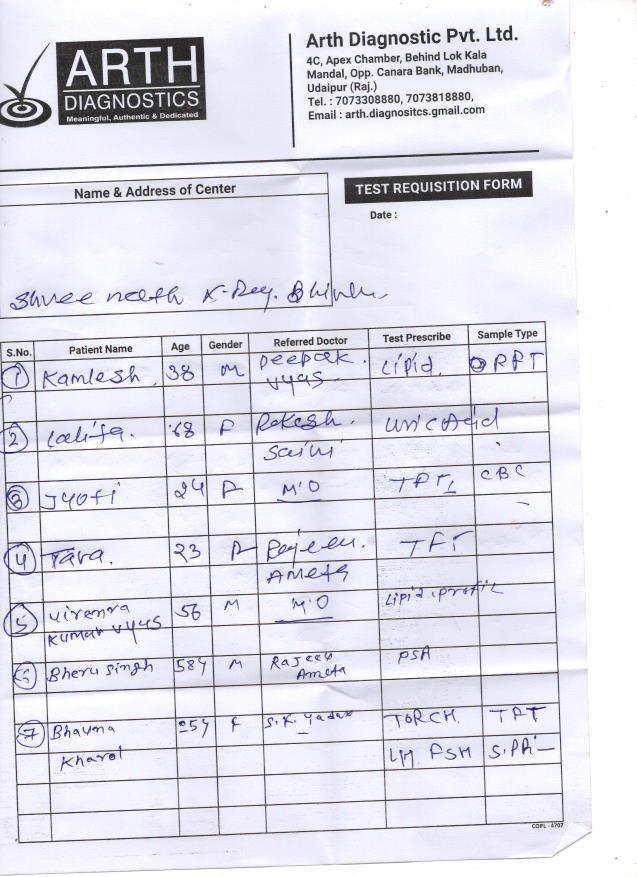 ARTH
DIAGNOSTICS
Meaningful, Authentic & Dedicated
Arth Diagnostic Pvt. Ltd.
4C, Apex Chamber, Behind Lok Kala
Mandal, Opp. Canara Bank, Madhuban,
Udaipur (Raj.)
Tel. : 7073308880, 7073818880,
Email : arth.diagnositcs.gmail.com
Name & Address of Center
TEST REQUISITION FORM
Date :
Shree nath X-Ray.
S.No. Patient Name Age Gender Referred Doctor Test Prescribe Sample Type
1 Kamlesh. 38 M Deepak. Lipid. RFT
Vyas.
2 Lalita. 68 F Rakesh. Uric Acid
Saini
3 Jyoti 24 F M'O TFT CBC
4 Tara. 23 F TFT
Ameta
5 Virendra 56 M M'O Lipid profil
Kumar Vyas
6 Bheru singh 58y M Rajeev PSA
Ameta
7 Bhavna 25y F S.K. Yadav TORCH. TFT
Kharol LH. FSH
COPL - 4707